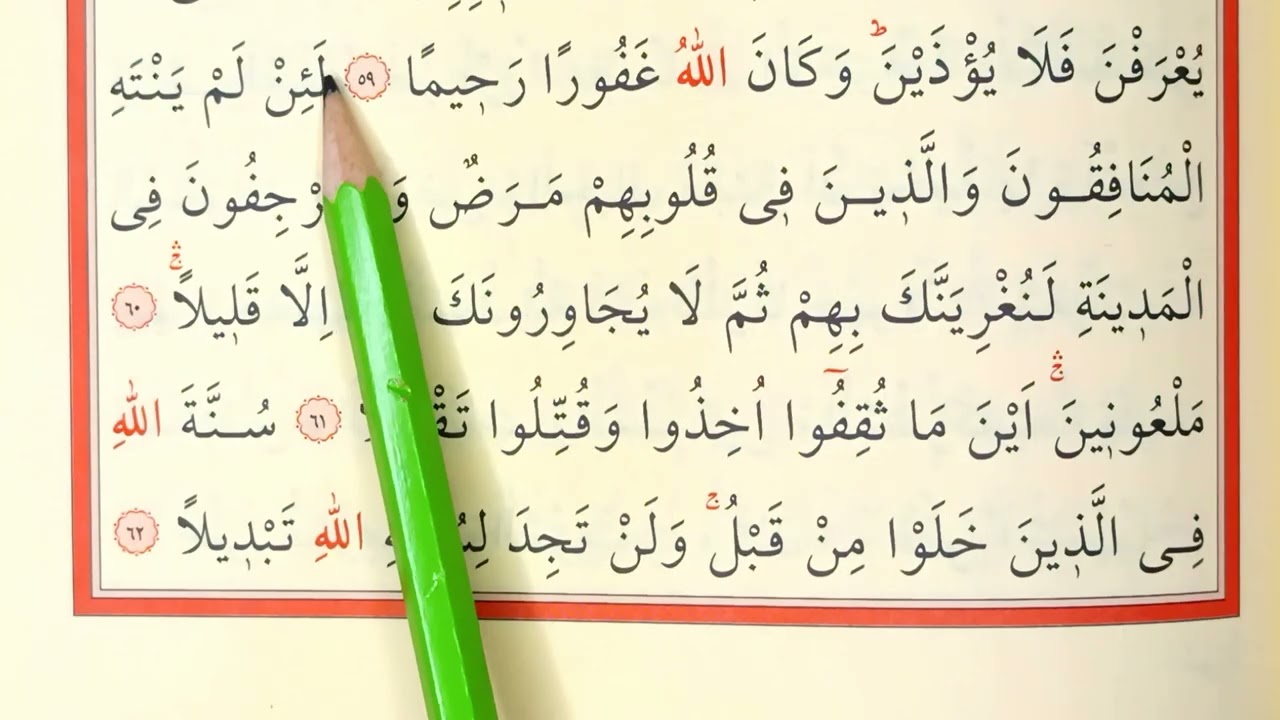 يُعْرَفْنَ فَلَا يُؤْذَيْنَۜ وَكَانَ اللّٰهُ غَفُورًا رَحٖيمًا ٥٩ لَئِنْ لَمْ يَنْتَهِ
الْمُنَافِقُونَ وَالَّذٖينَ فٖى قُلُوبِهِمْ مَرَضٌ رْجِفُونَ فِى
الْمَدٖينَةِ لَنُغْرِيَنَّكَ بِهِمْ ثُمَّ لَا يُجَاوِرُونَكَ اِلَّا قَلٖيلًاۚۛ ٦٠
مَلْعُونٖينَۚۛ اَيْنَ مَا ثُقِفُٓوا اُخِذُوا وَقُتِّلُوا ٦١ سُنَّةَ اللّٰهِ
فِى الَّذٖينَ خَلَوْا مِنْ قَبْلُۚ وَلَنْ تَجِدَ اللّٰهِ تَبْدٖيلًا ٦٢